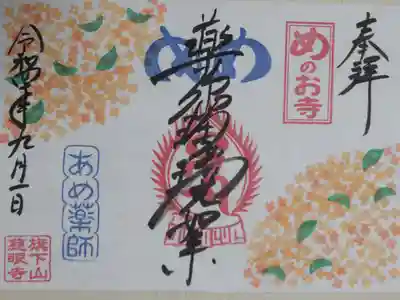 奉拝
めのお寺
薬師瑠璃光如来
あめ薬師
令和 年九月一日
旗下山
慈眼寺